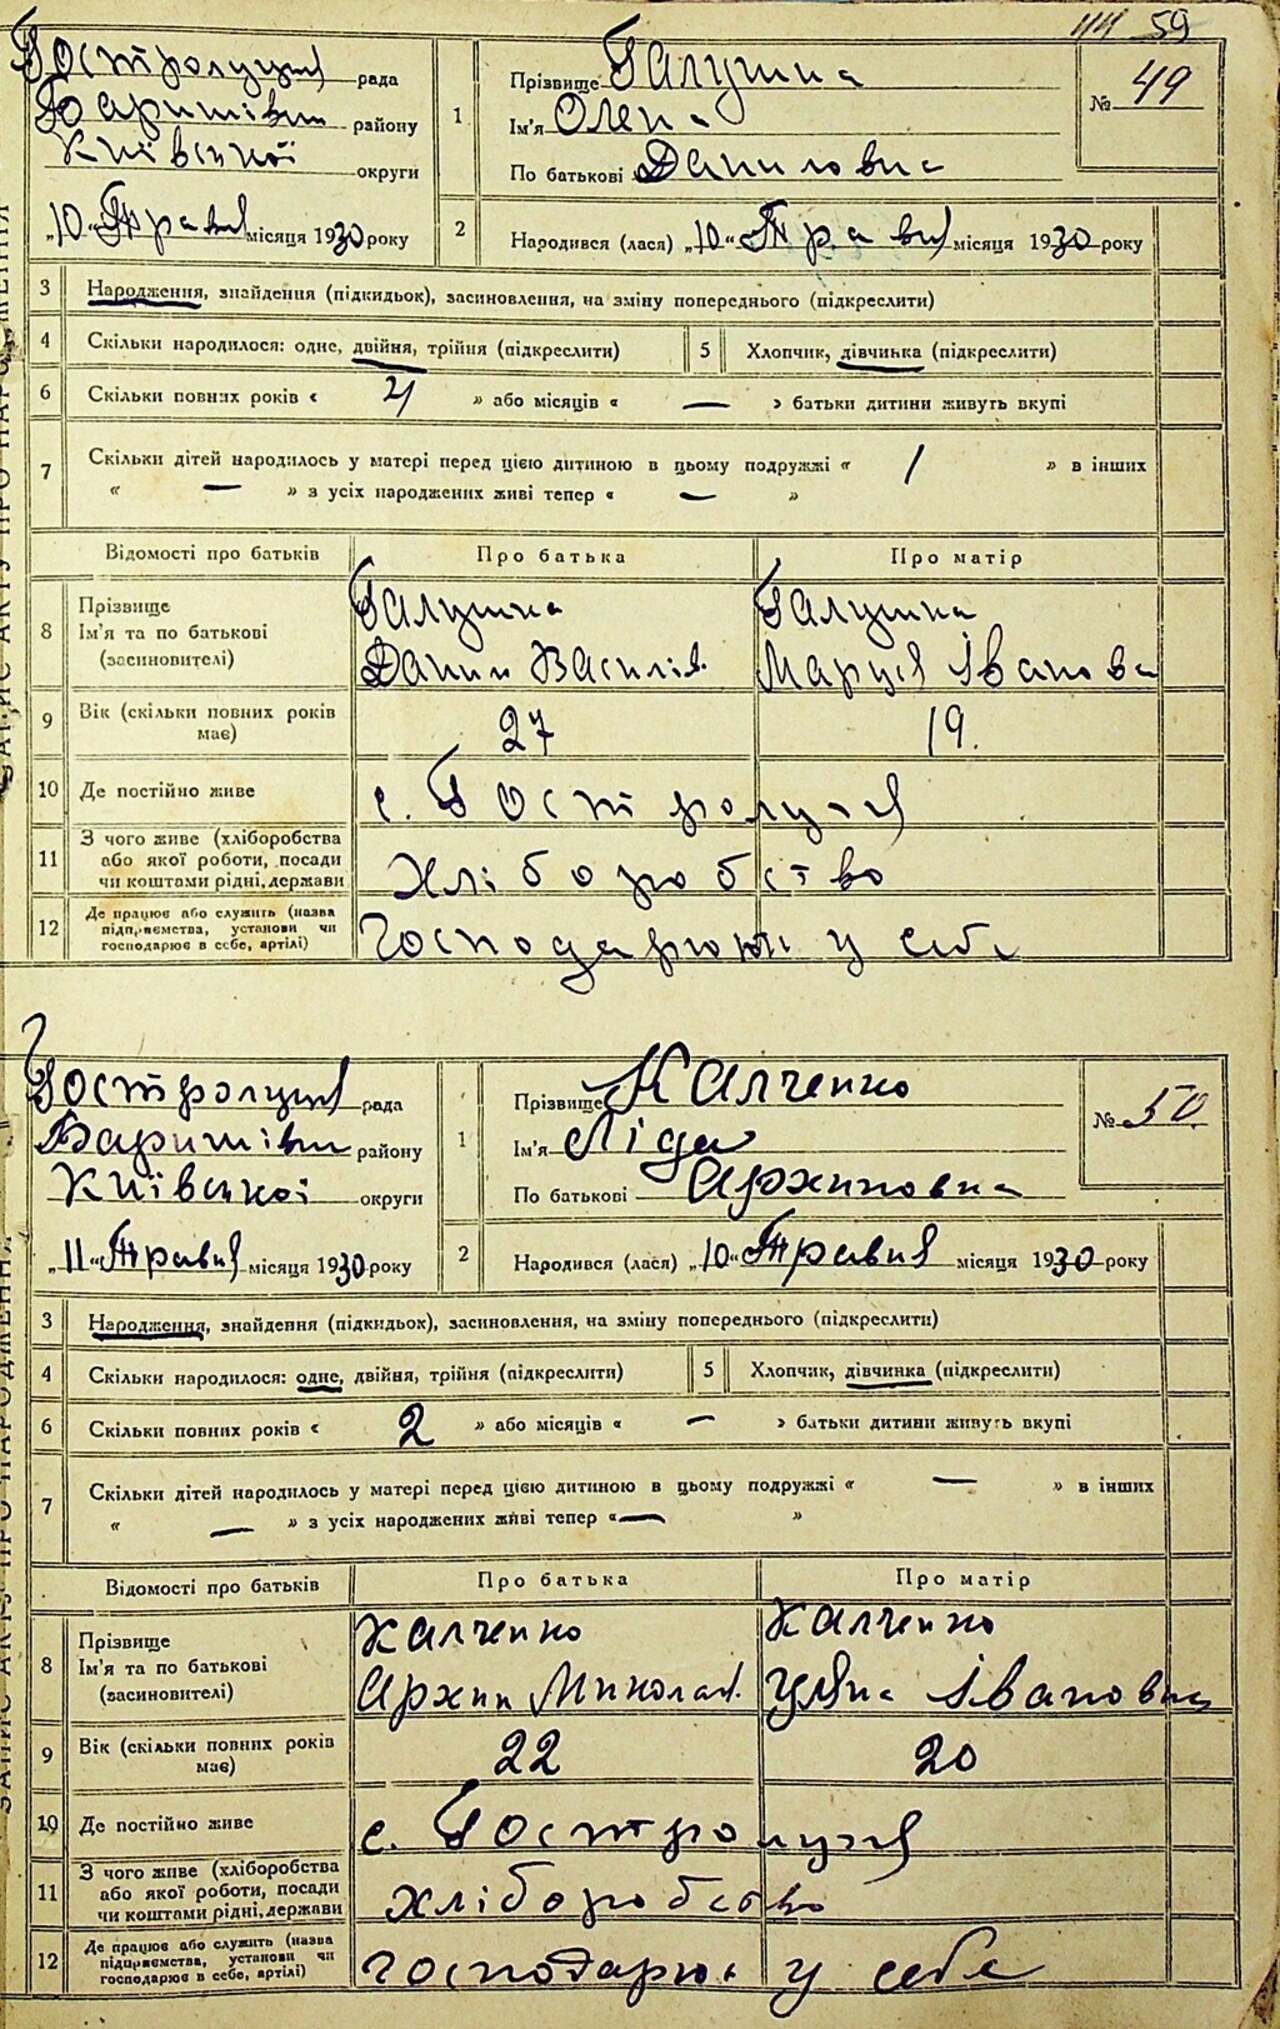 59
Гостролуцька рада
Баришівськ району
Київської округи
„10“ Травня місяця 1930 року
1
Прізвище Галушка
Ім'я Олена
По батькові Даниловна
№ 49
2
Народився (лася) „10“ Травня місяця 1930 року
3 Народження, знайдення (підкидьок), засиновлення, на зміну попереднього (підкреслити)
4 Скільки народилося: одне, двійня, трійня (підкреслити) 5 Хлопчик, дівчинка (підкреслити)
6 Скільки повних років « » або місяців « — » батьки дитини живуть вкупі
7 Скільки дітей народилось у матері перед цією дитиною в цьому подружжі « 1 » в інших
« — » з усіх народжених живі тепер « — »
Відомості про батьків Про батька Про матір
8 Прізвище Ім'я та по батькові (засиновителі)
Галушка Галушка
Данило Василів. Маруся Іванова
9 Вік (скільки повних років має) 27 19.
10 Де постійно живе с. Гостролуччя
11 З чого живе (хліборобства або якої роботи, посади чи коштами рідні, держави Хліборобство
12 Де працює або служить (назва підприємства, установи чи господарює в себе, артілі) Господарюють у себе
Гостролуцька рада
Баришівськ району
Київської округи
„11“ Травня місяця 1930 року
1
Прізвище Калченко
Ім'я Ліда
По батькові Архиповна
№ 50.
2
Народився (лася) „10“ Травня місяця 1930 року
3 Народження, знайдення (підкидьок), засиновлення, на зміну попереднього (підкреслити)
4 Скільки народилося: одне, двійня, трійня (підкреслити) 5 Хлопчик, дівчинка (підкреслити)
6 Скільки повних років « 2 » або місяців « — » батьки дитини живуть вкупі
7 Скільки дітей народилось у матері перед цією дитиною в цьому подружжі « — » в інших
« — » з усіх народжених живі тепер « — »
Відомості про батьків Про батька Про матір
8 Прізвище Ім'я та по батькові (засиновителі)
Калченко Калченко
Архип Миколай. Уляна Івановна
9 Вік (скільки повних років має) 22 20
10 Де постійно живе с. Гостролуччя
11 З чого живе (хліборобства або якої роботи, посади чи коштами рідні, держави хліборобство
12 Де працює або служить (назва підприємства, установи чи господарює в себе, артілі) господарює у себе